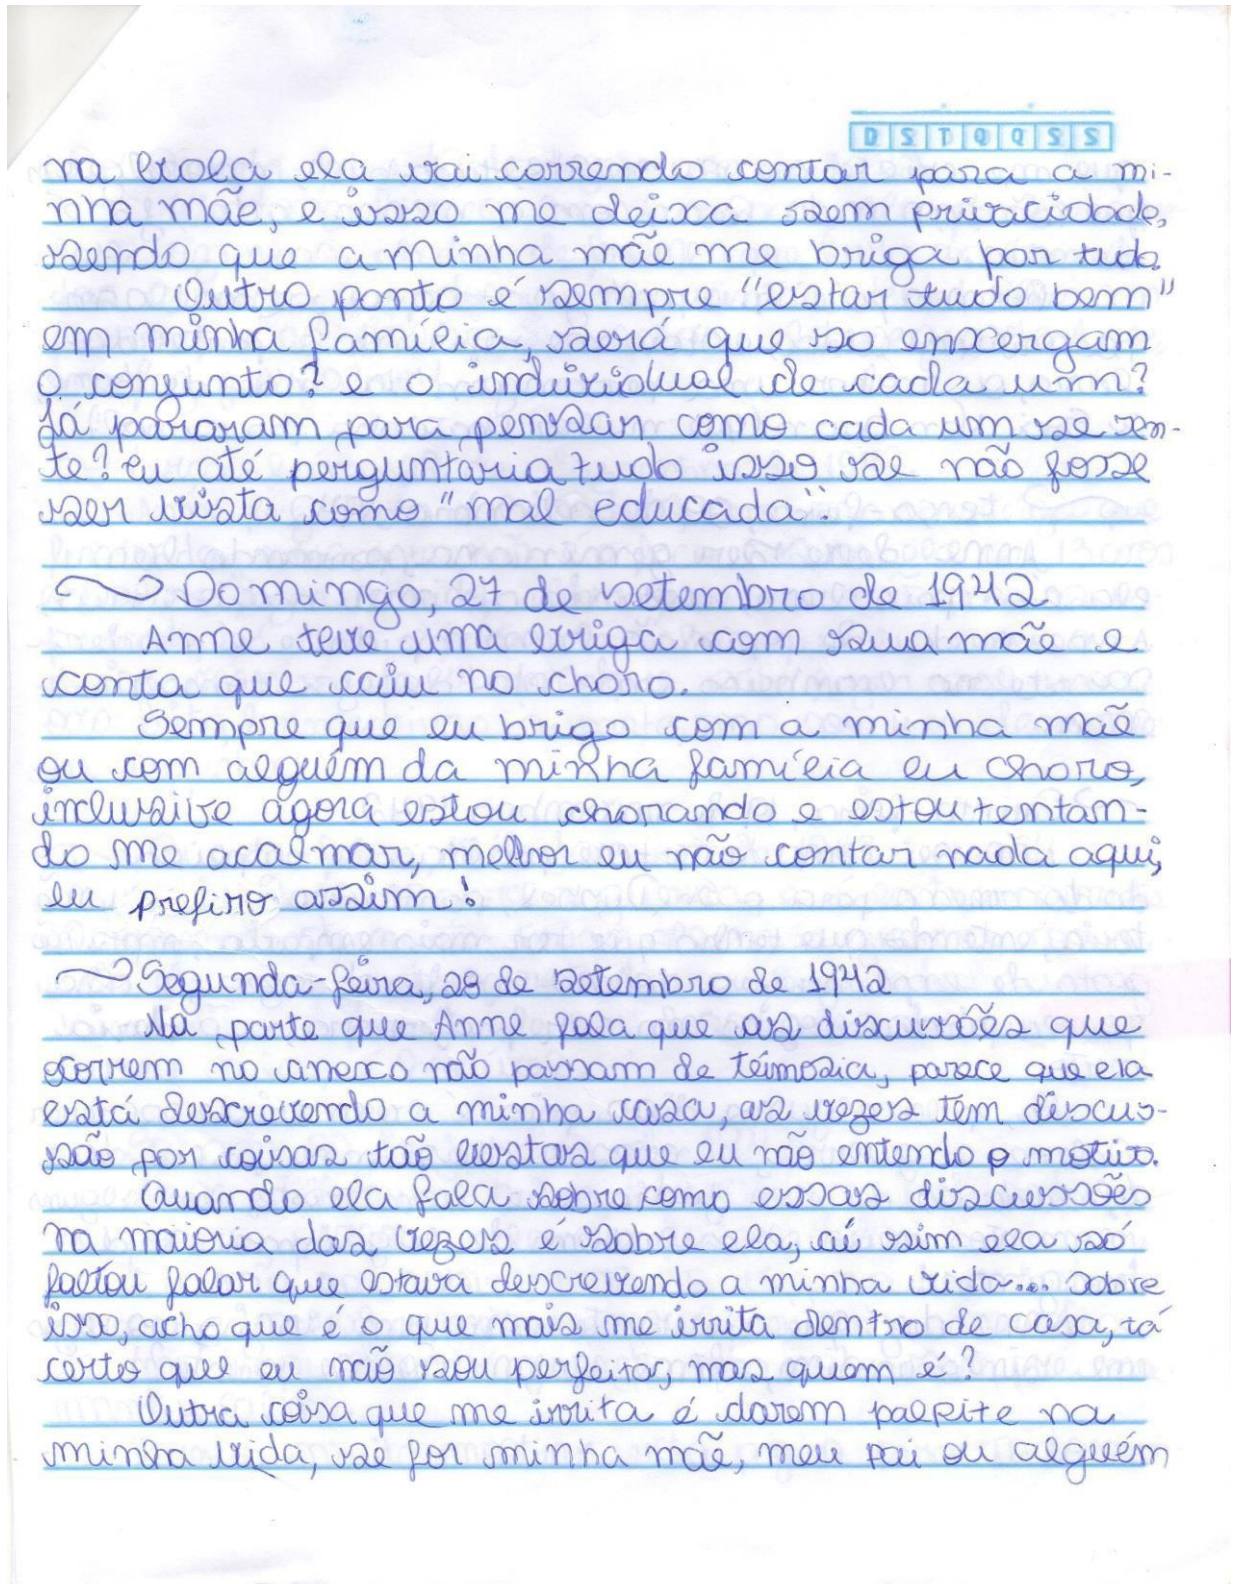 D S T Q Q S S
na bola ela vai correndo contar para a mi-
nha mãe, e isso me deixa sem privacidade,
sendo que a minha mãe me briga por tudo.
Outro ponto é sempre "estar tudo bem"
em minha família, será que so enxergam
o conjunto? e o individual de cada um?
Já pararam para pensar como cada um se sen-
te? eu até perguntaria tudo isso se não fosse
ser vista como "mal educada".
Domingo, 27 de setembro de 1942
Anne teve uma briga com sua mãe e
conta que caiu no choro.
Sempre que eu brigo com a minha mãe
ou com alguém da minha família eu choro,
inclusive agora estou chorando e estou tentan-
do me acalmar, melhor eu não contar nada aqui,
eu prefiro assim!
Segunda-feira, 28 de setembro de 1942
Na parte que Anne fala que as discussões que
ocorrem no anexo não passam de teimosia, parece que ela
está descrevendo a minha casa, as vezes tem discus-
são por coisas tão bestas que eu não entendo o motivo.
Quando ela fala sobre como essas discussões
na maioria das vezes é sobre ela, aí sim ela só
faltou falar que estava descrevendo a minha vida... sobre
isso, acho que é o que mais me irrita dentro de casa, tá
certo que eu não sou perfeita, mas quem é?
Outra coisa que me irrita é darem palpite na
minha vida, se for minha mãe, meu pai ou alguém